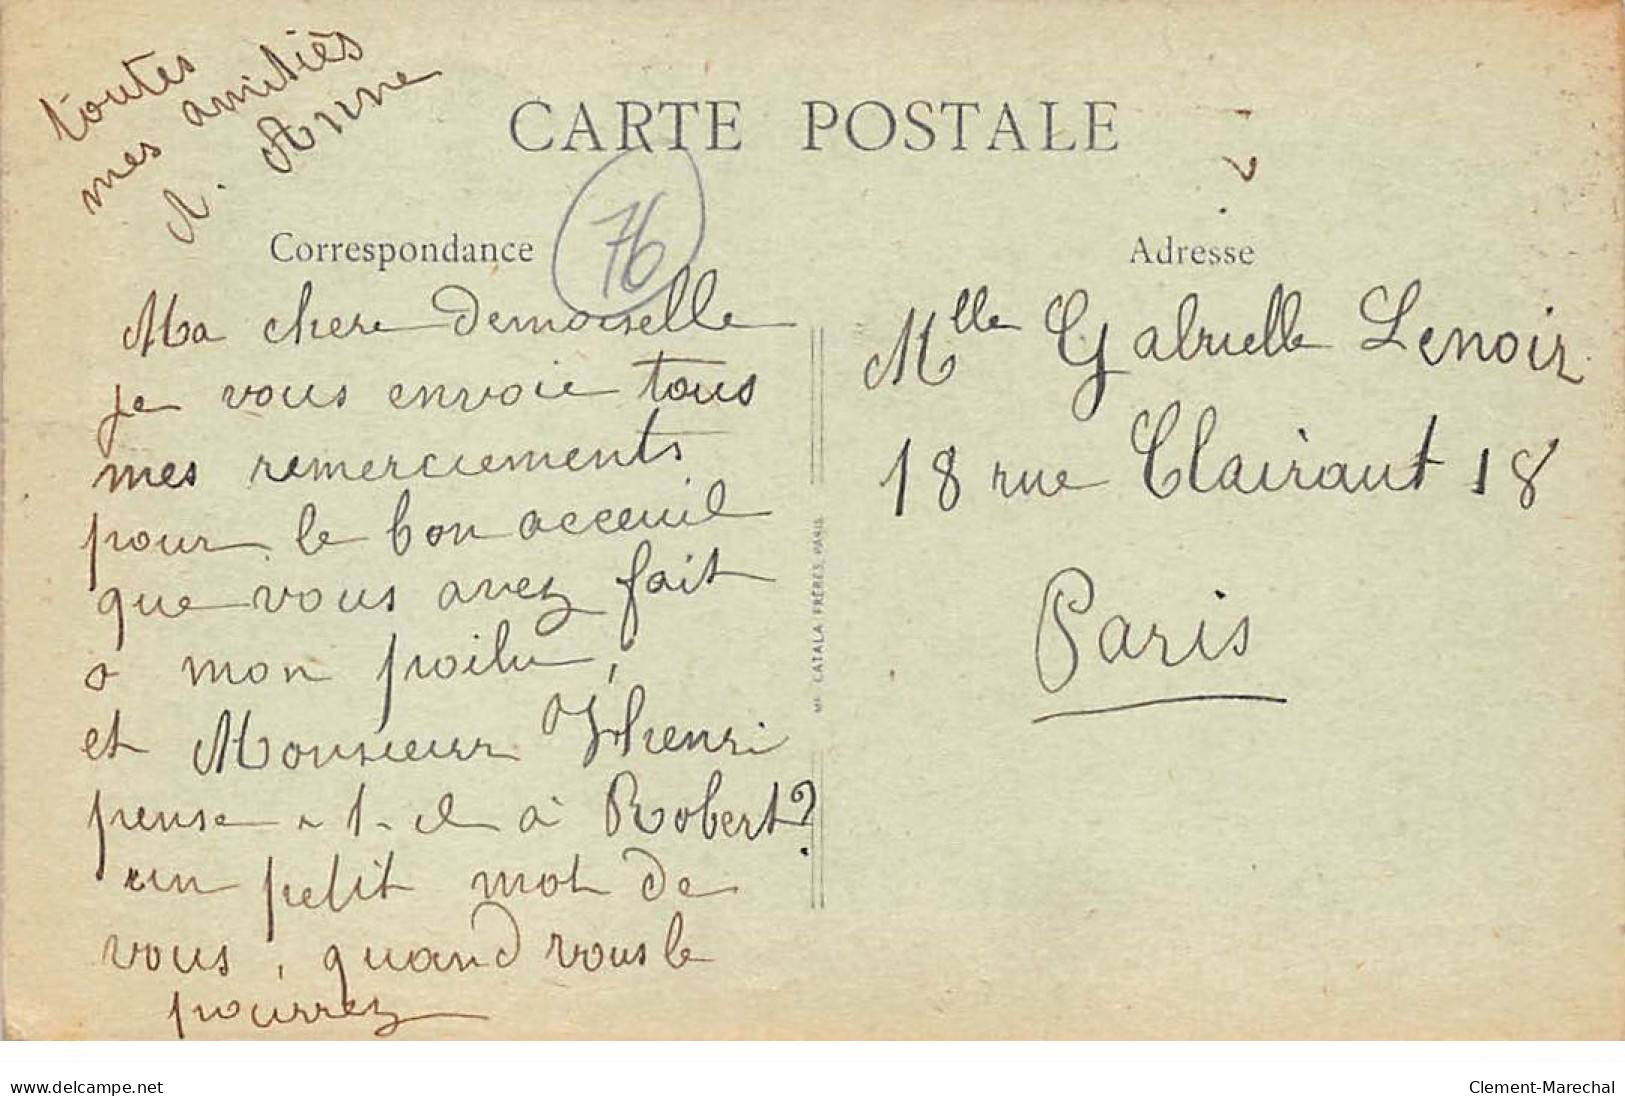 toutes
mes amitiés
A. Anne
CARTE POSTALE
76
Correspondance
Ma chere demoiselle
je vous envoie tous
mes remerciements
pour le bon acceuil
que vous avez fait
a mon poilu,
et Monsieur Henri
pense-t-il à Robert?
un petit mot de
vous, quand vous le
pourrez
CATALA FRÈRES, PARIS
Adresse
Mlle Gabrielle Lenoir
18 rue Clairaut 18
Paris
www.delcampe.net
Clement-Marechal